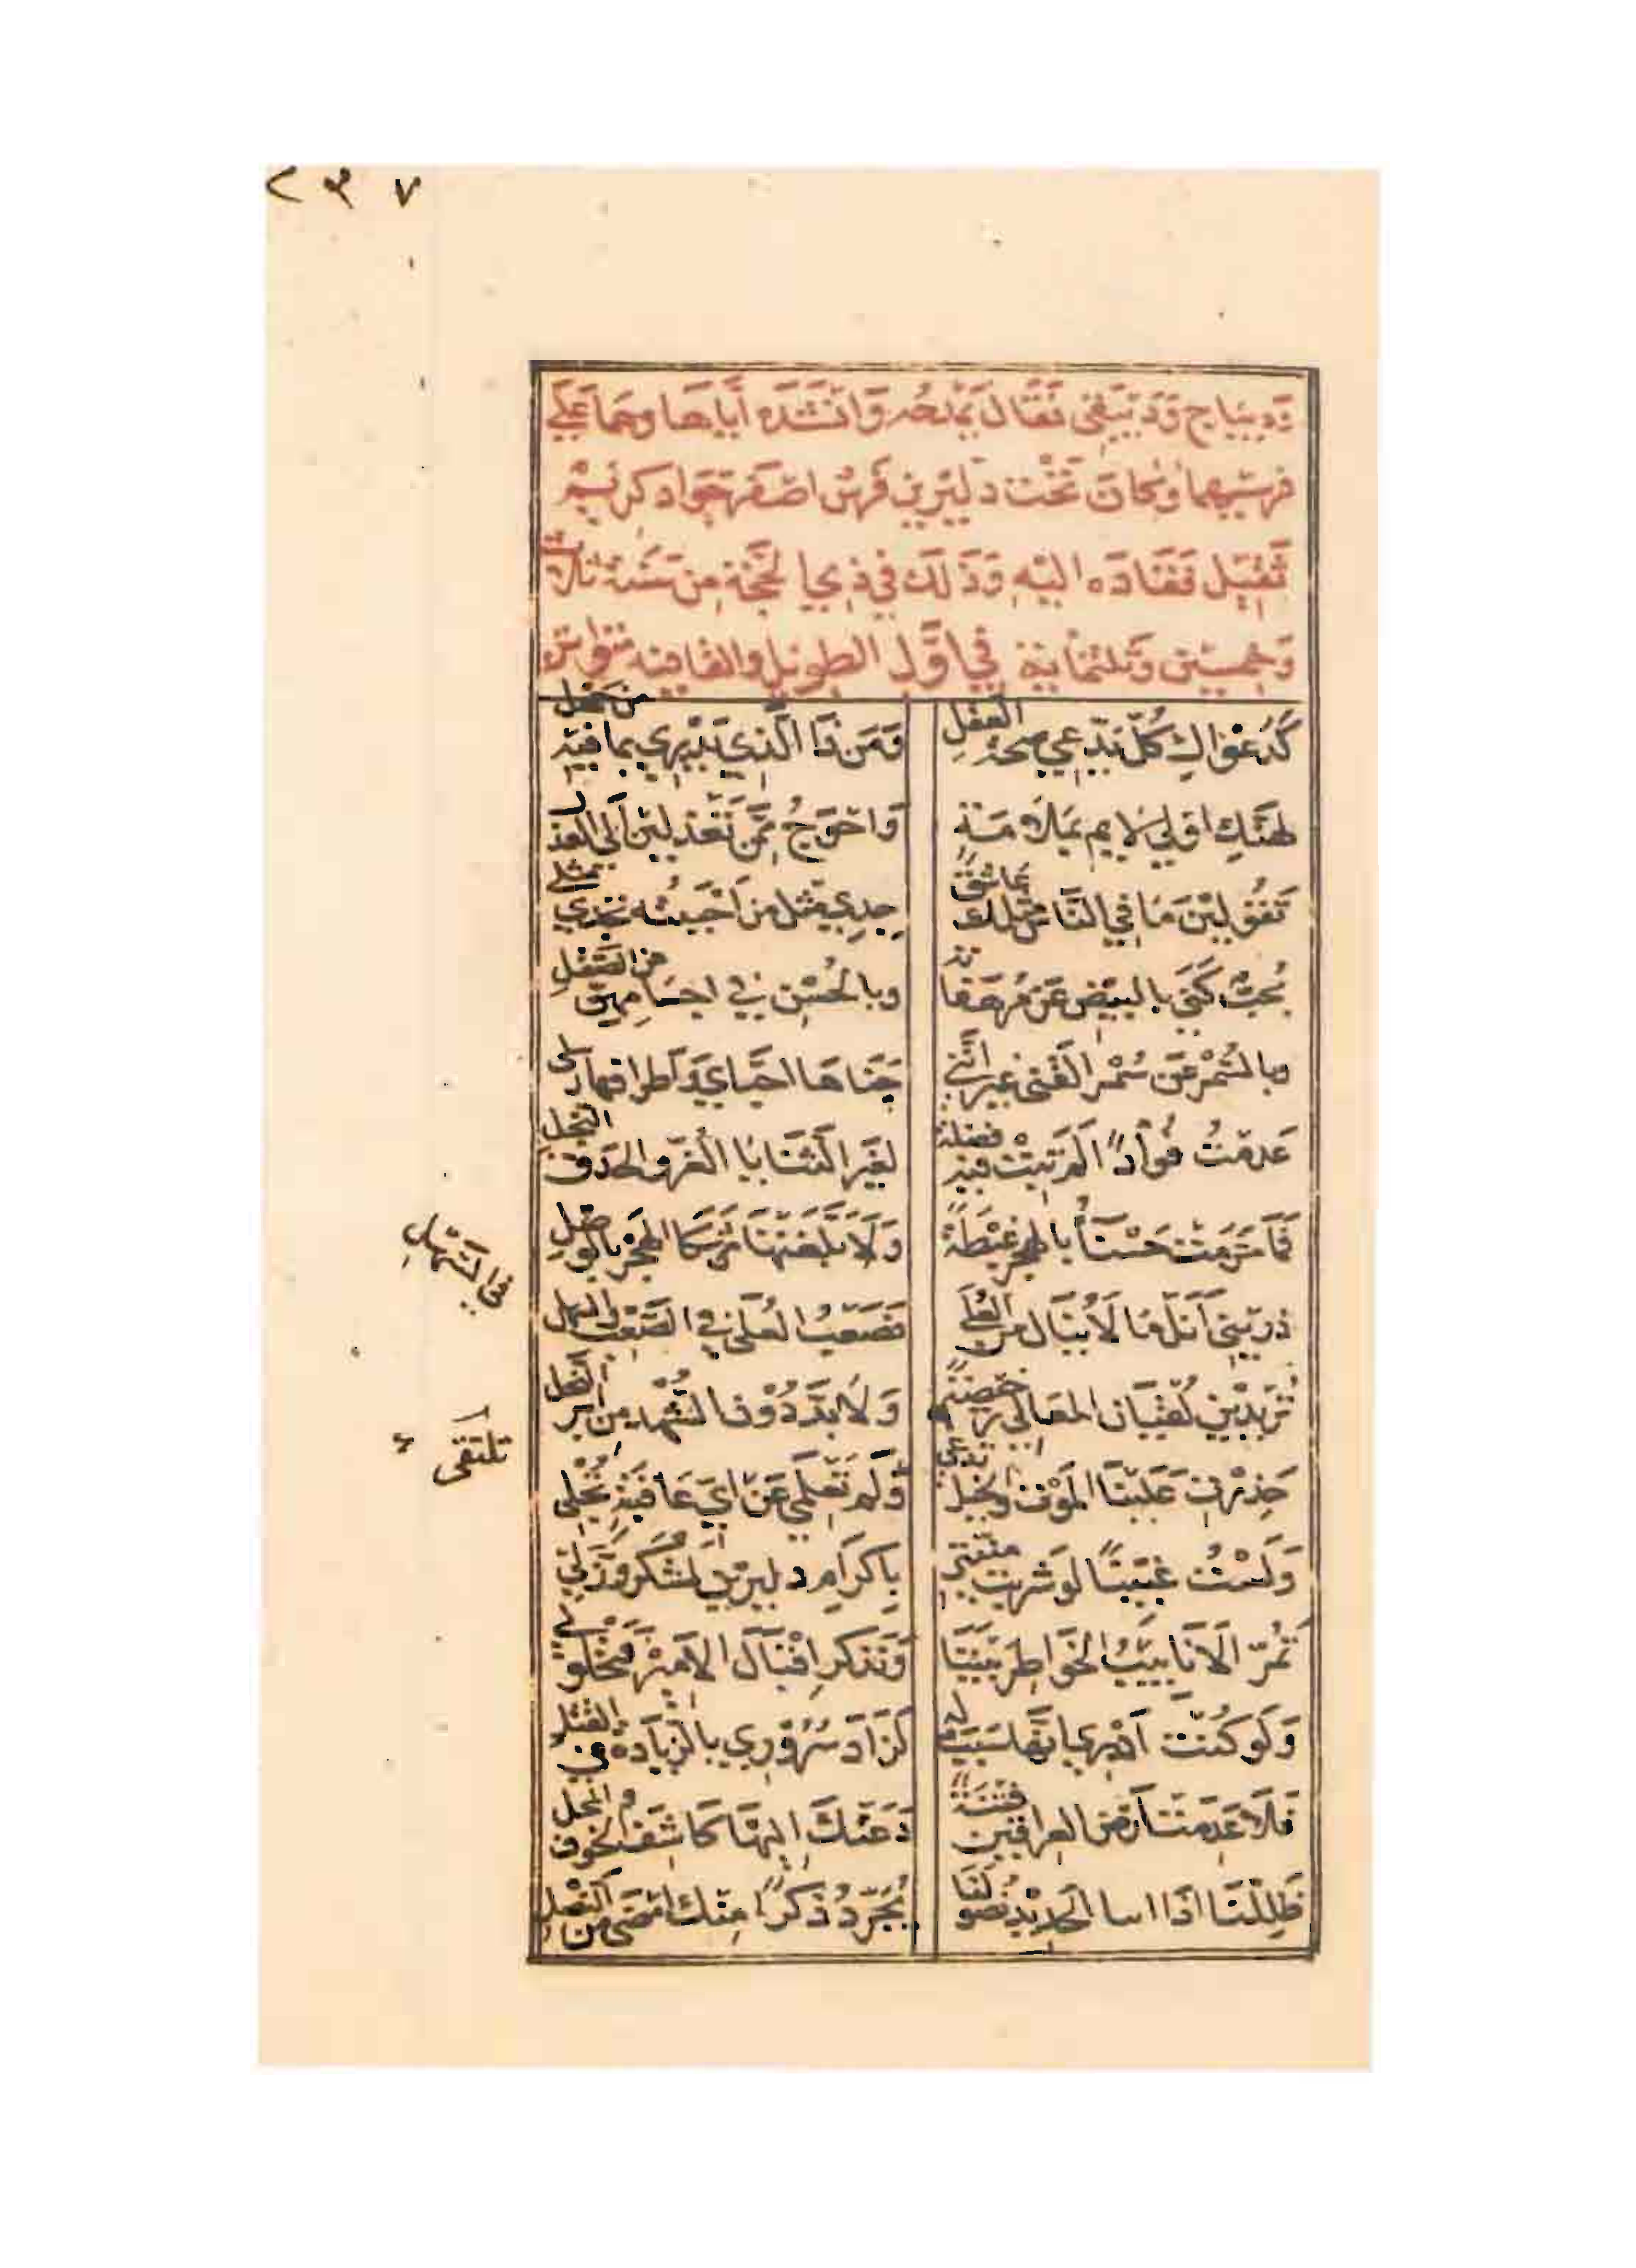 ٢٣٧
وَدِيبَاج وَدَبيقي فقَالَ يَمْدَحُه وَانشَدَه أيَّاهَا وهمَا عَلَى
فرسَيهما وَكانَ تحْت دليرين فَرسٌ اصْفَر جَوَاد كرنيم
ثَقِيل فَقَادَه اليْهِ وَذَلكَ في ذي الحجّةِ مِن سَنَة ثلاث
وَخمسِين وَثلثمَائة في اوَّل الطويل والقافية متواتر
كَدَعْوَاكِ كُلّ يَدّعي صحّةَ العقلِ
وَمَن ذَا الَّذي يَدْرِي بما فيهِ من جَهْلِ
لهَنّكِ اوْلى لايم بمَلامَةٍ
وَاحْوَجُ ممّن تَعْذلينَ إلى العذلِ
تَقُولينَ مَا في النَّاس مثلك عَاشقٌ
جِدِي مثل من أحْبَبْتُه تجدي مثلي
مُحبٌّ كَنَى بالبيْض عَن مُرهَفاته
وبالحُسْن في اجسَامِهنّ من الصَّقلِ
وبالسُّمْر عَن سُمْر القَنى غير انَّني
جَنَاهَا احبَّايَ وَاطرافهَا رسلي
عَدمْتُ فُؤَاداً لَم تَبِتْ فيه فضلة
لغَير الثَّنَايَا الغُرّ والحَدق النّجل
فَمَا حَرَمَتْ حَسْنَاءُ بالهجر غبْطَةً
وَلا بَلَّغَتْهَا مَن شَكَا الهَجْرَ بالوَصْلِ
ذريني أَنَل مَا لَا يُنَال من العُلَى
فصَعْبُ العُلَى في الصَّعْب والسهل
في السَّهْلِ
تُريدينَ لُقْيَان المعَالي رخيصَةً
وَلَا بدَّ دُوْنَ الشُّهد مِن ابَر النَّحل
حَذِرْتِ عَلَيْنَا المَوْتَ والخيل تدّعي
وَلَم تَعْلَمي عَنْ ايّ عَاقبَةٍ تُجْلي
تلتقى
وَلَسْتُ غَبِيناً لَو شريت منيتي
بإكرَامِ دليرين لشكروز لي
تُمِرّ الانَابيبُ الخَوَاطر بَيْنَنَا
وَنَذكر إقْبَالَ الاميْر فتَحْلَوْ لي
وَلَو كُنْتُ ادْري أنَّها سَبَبٌ له
لَزَادَ سُرُوري بالزّيَادة في القَتْل
فَلَا عَدِمَتْ أرْضُ العراقَين فتنَةً
دَعَتْكَ اليهَا كَاشفَ الخوف والمحل
ظَلِلْنَا اذَا انبا الحَديْدُ نصولَنا
نُجَرّدُ ذكراً مِنْكَ امْضَى من النَّصْلِ